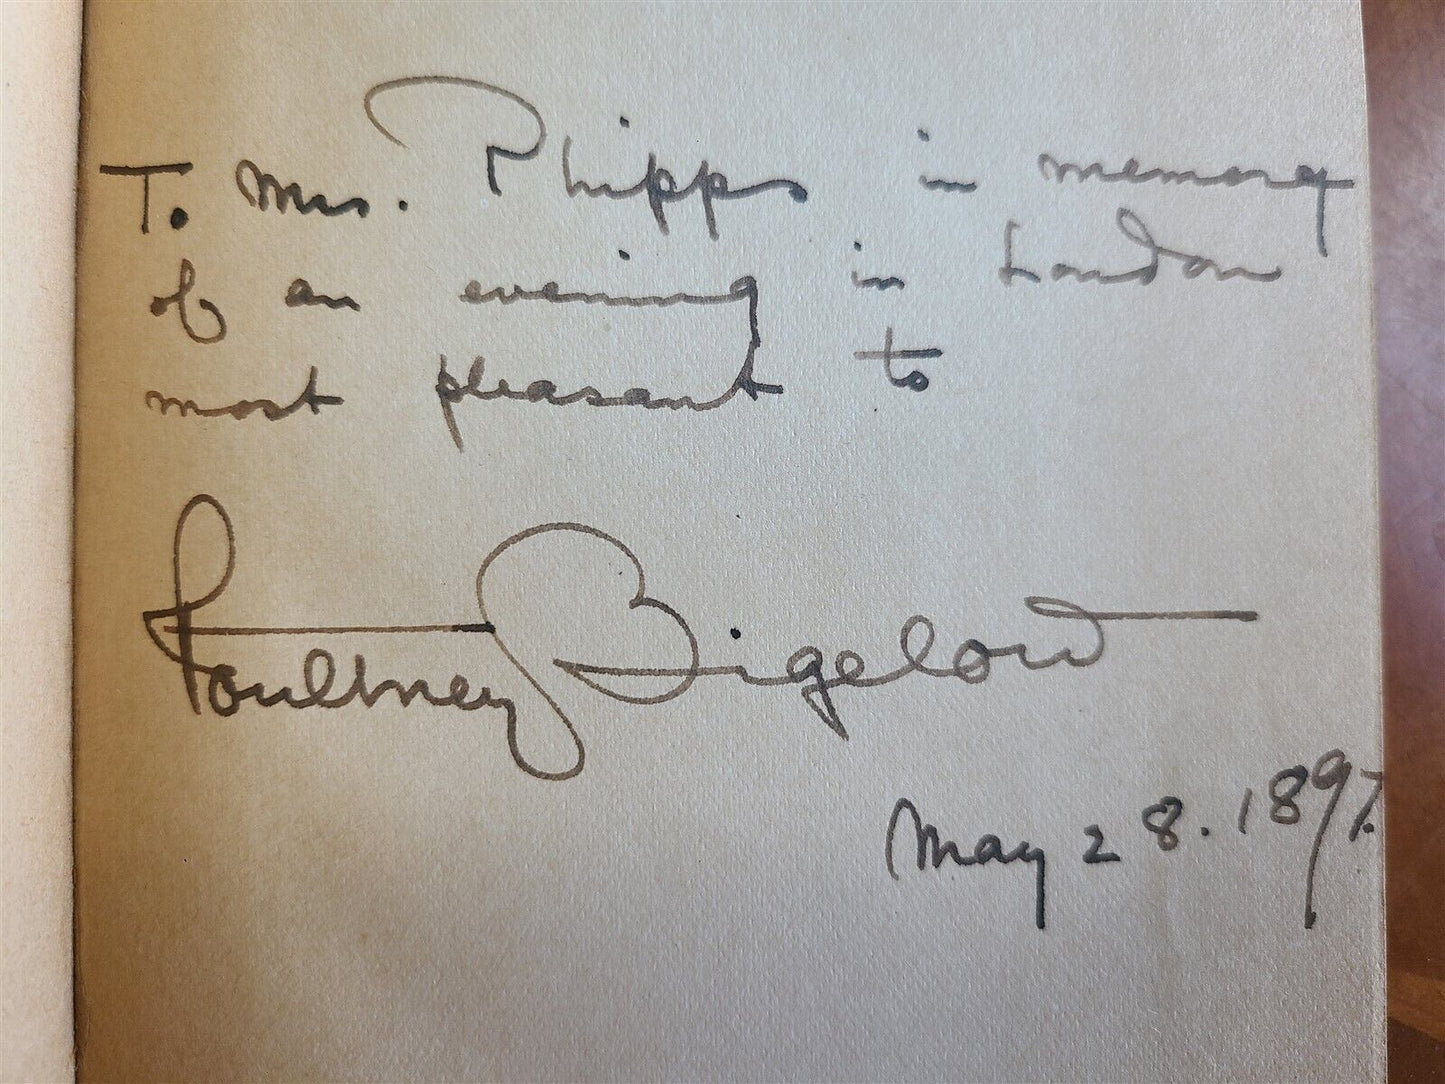 To Mrs. Phipps in memory
of an evening in London
most pleasant to
Poultney Bigelow
May 28. 1897.